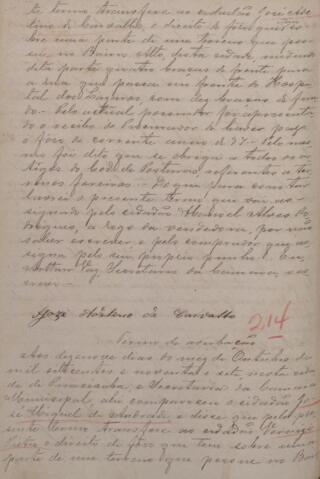 te termo transfere ao cidadão José Ma
lino de Carvalho, o direito de fóro que tem so
bre uma parte de um terreno que pos
sue no Bairro Alto, desta cidade, medindo
dita parte quatro braças de frente para
a rua que passa em frente do Hospi
tal dos Lazaros, com dez braças de fun
do. Pelo actual possuidor foi apresenta
do o recibo do Procurador de haver pago
o fóro do corrente anno de 97. Pelo mes
mo foi dito que se obriga a todos os ar
tigos do Cod. de Posturas, referentes a ter
renos foreiros. Do que para constar
lavrei o presente termo, que vai as
signado pelo cidadão Manoel Alves Ro
drigues, a rogo da vendedora, por não
saber escrever e pelo comprador que as
signa pelo seu proprio punho. Eu,
Vaz, Secretario da Camara, es
crevi.
José de Carvalho
214
Termo de averbação
Aos dezenove dias do mez de Outubro de
mil oitocentos e noventa e sete nesta cida
de de Piracicaba, e Secretaria da Camara
Municipal, ahi compareceu o cidadão Jo
sé Miguel de Andrade e disse que pelo pre
sente termo transfere ao cidadão
o direito de fóro que tem sobre uma
parte de um terreno que possue no Bair